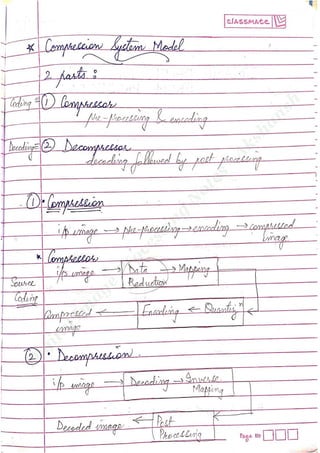 classmate
* Compression System Model
2 parts :
Coding = ① Compressor
pre-processing & encoding
Decoding = ② Decompressor
decoding followed by post processing
① • Compression
i/p image → pre-processing → encoding → compressed image
* Compressor
i/p image → Data Reduction → Mapping
Source Coding
Compressed image ← Encoding ← Quantizⁿ
② • Decompression
i/p image → Decoding → Inverse Mapping
Decoded image ← Post Processing
Page No